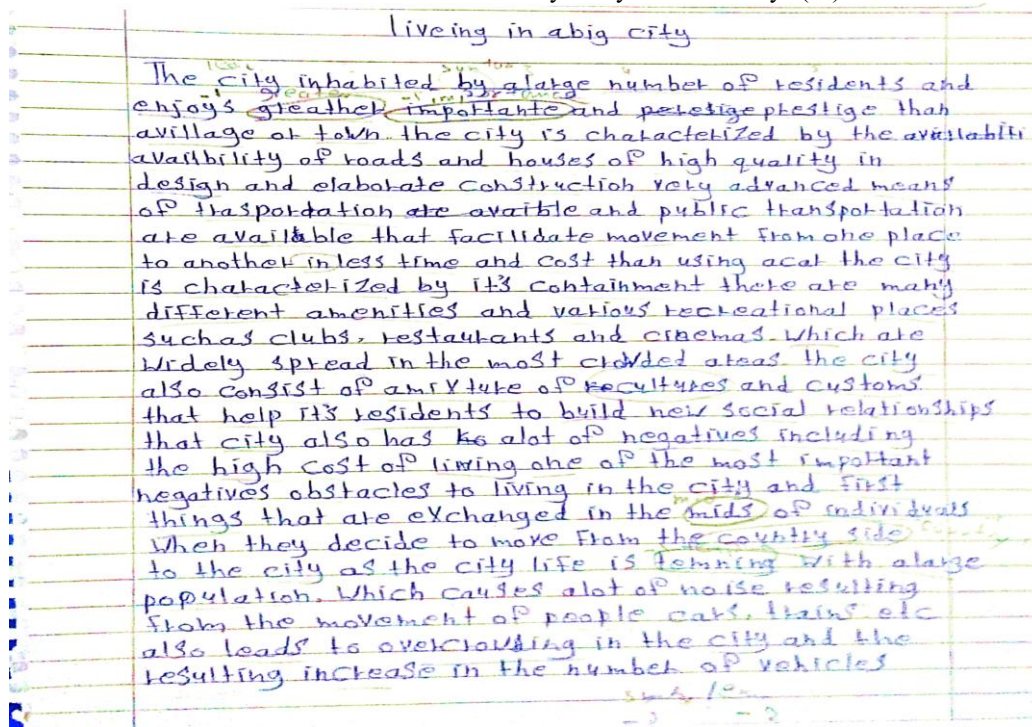 liveing in abig city
The city inhabited by alarge number of residents and
enjoys greather importante and peresige prestige than
avillage or town the city is characterized by the availabliti
availbility of roads and houses of high quality in
design and elaborate construction very advanced means
of trasportation are avaible and public transportation
are available that facilidate movement from one place
to another inless time and cost than using acar the city
is characterized by it's containment there are many
different amenities and various recreational places
suchas clubs, restaurants and cinemas. Which are
Widely spread in the most crowded areas. the city
also consist of amixture of recultures and customs
that help it's residents to build new social relationships
that city also has alot of negatives including
the high cost of living one of the most important
negatives obstacles to living in the city and first
things that are exchanged in the mids of individuals
When they decide to move from the country side
to the city as the city life is temning with alarge
population. Which causes alot of noise resulting
from the movement of people cars, trains etc
also leads to overcrowding in the city and the
resulting increase in the number of vehicles